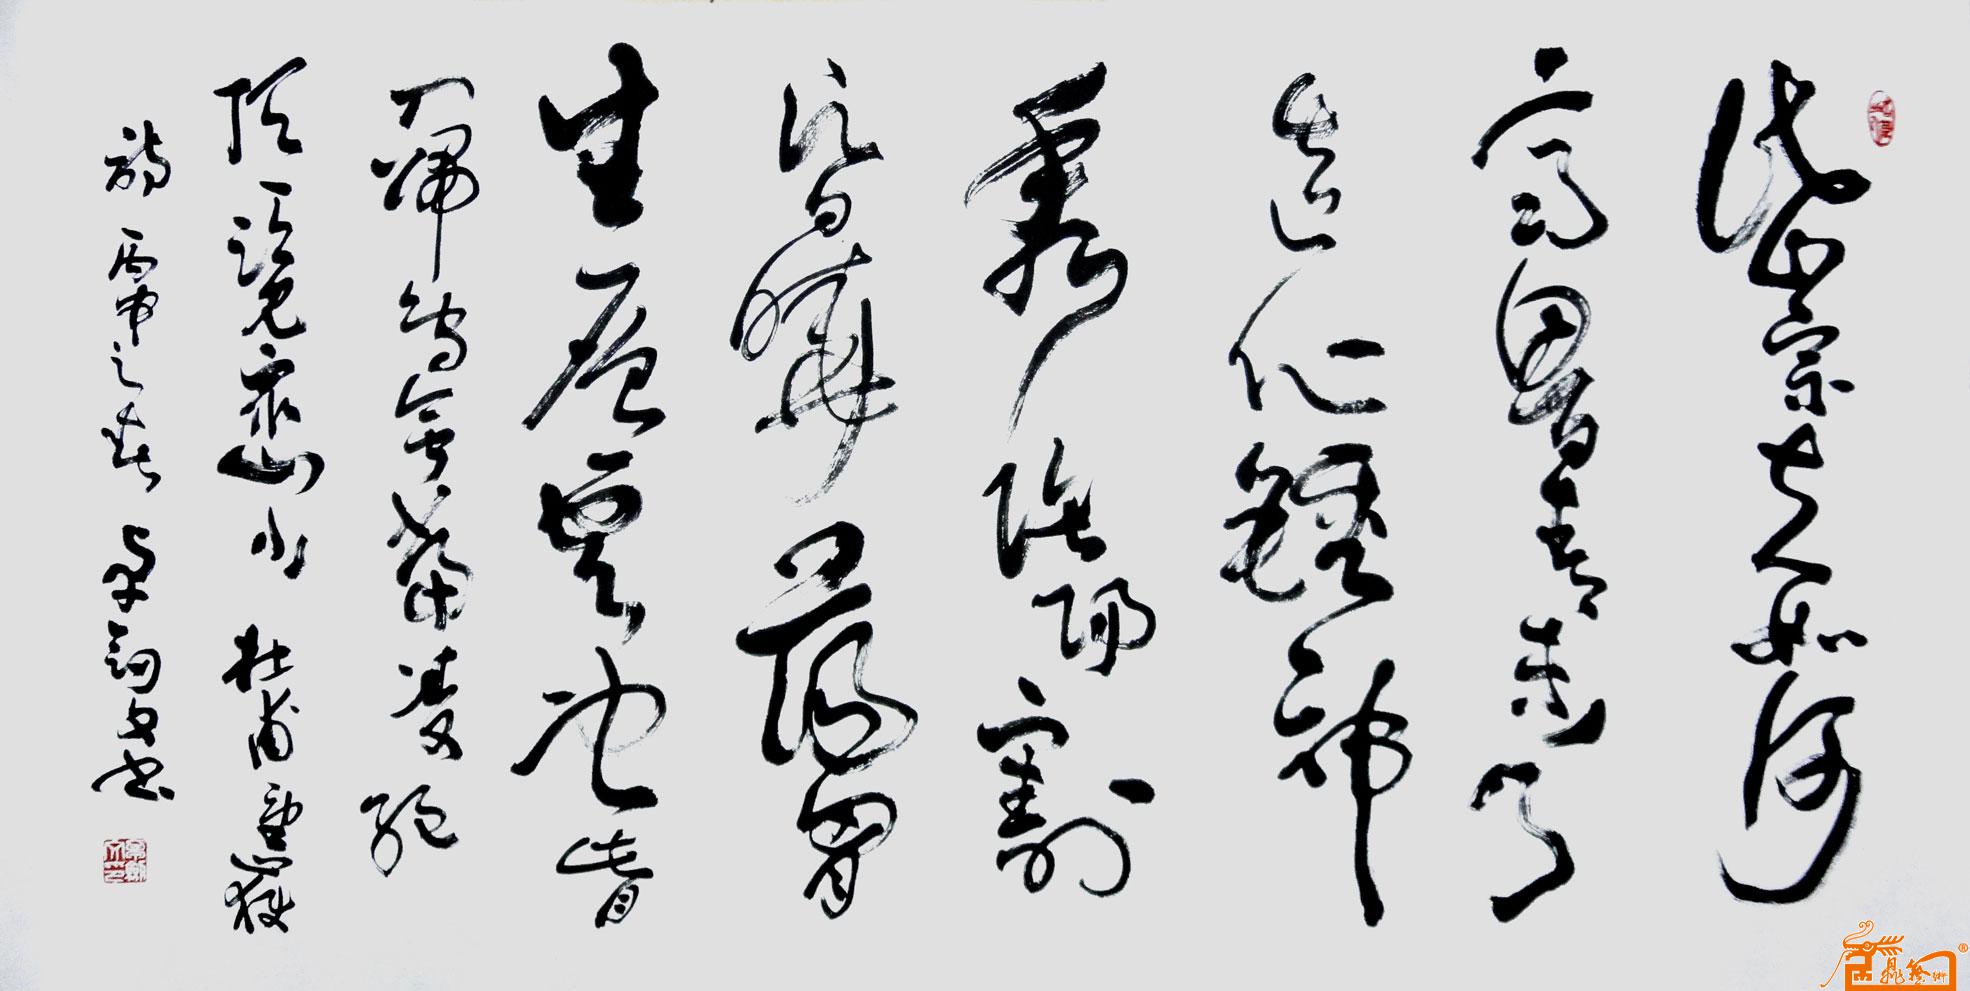 岱宗夫如何
齊魯青未了
造化鍾神
秀陰陽割
昏曉蕩胷
生層雲決眥
入歸鳥會當凌絕
頂一覽衆山小 杜甫望嶽
詩 丙申之春 文書